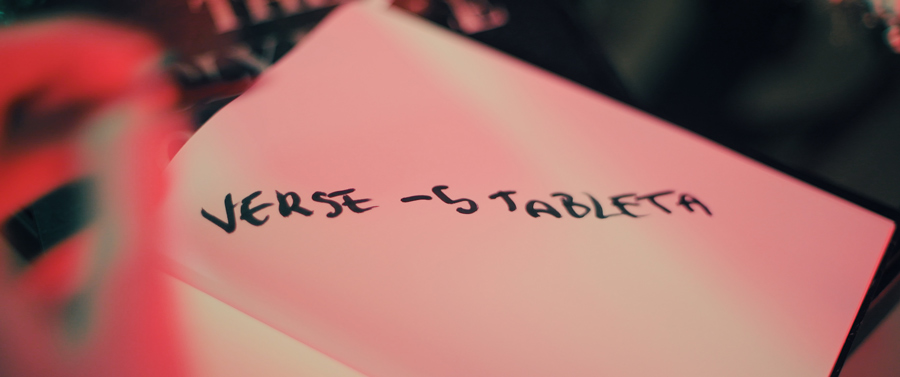 VERSE -5 TABLETA